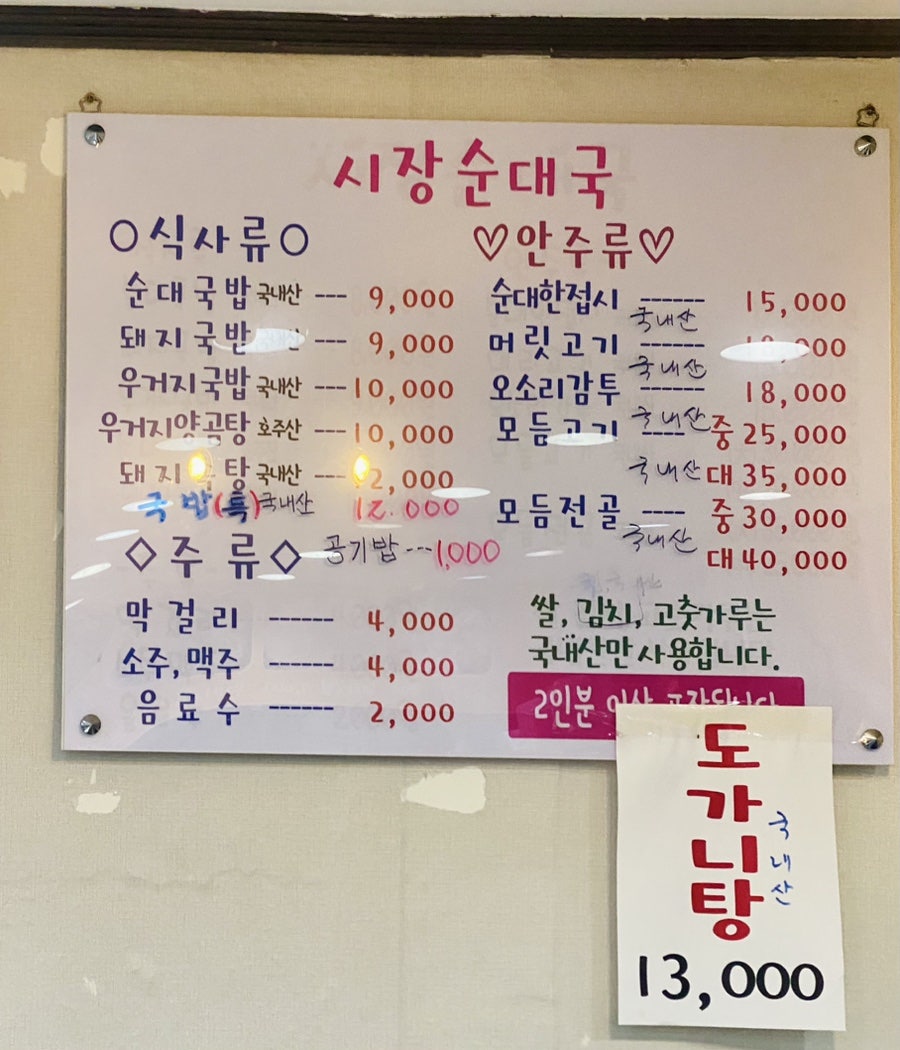 시장순대국
○식사류○
순대국밥 국내산 --- 9,000
돼지국밥 --- 9,000
우거지국밥 국내산 --- 10,000
우거지양곰탕 호주산 --- 10,000
돼지 탕 국내산 --- 2,000
국밥(특) 국내산 12.000
◇주류◇ 공기밥 --- 1,000
막걸리 ------ 4,000
소주, 맥주 ------ 4,000
음료수 ------ 2,000
♡안주류♡
순대한접시 ------ 15,000
국내산
머릿고기 ------
국내산
오소리감투 ------ 18,000
국내산
모듬고기 ---- 중 25,000
국내산 대 35,000
모듬전골 ---- 중 30,000
국내산
대 40,000
쌀, 김치, 고춧가루는
국내산만 사용합니다.
2인분
도가니탕
국내산
13,000